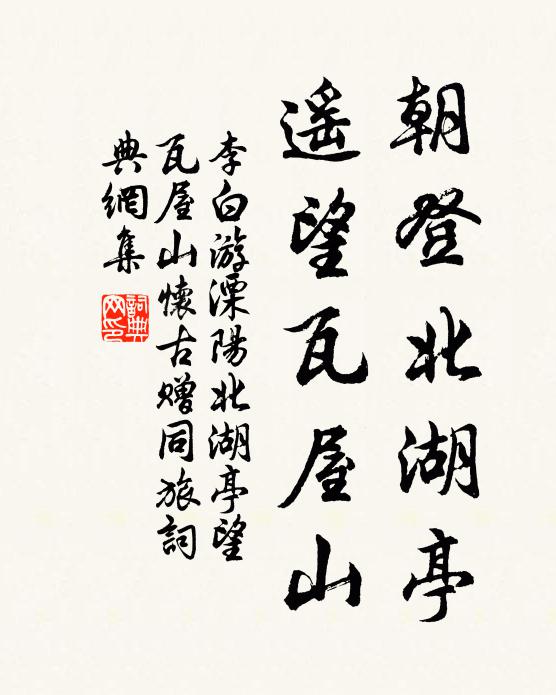 朝登北湖亭
遥望瓦屋山
李白游溧陽北湖亭望
瓦屋山懷古赠同旅詞
典網集
詞典
网印